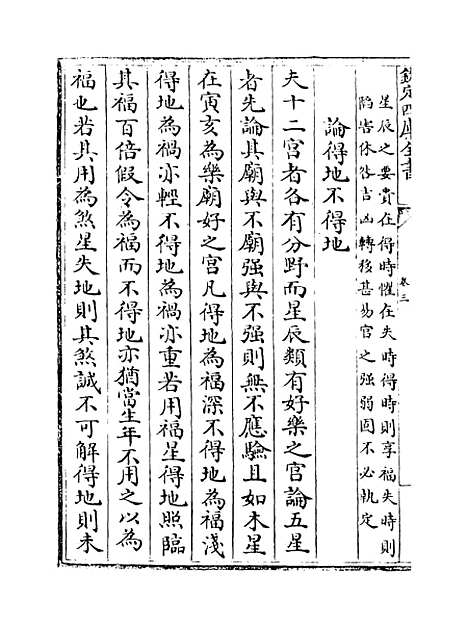 欽定四庫全書
卷三
星辰之要貴在得時懼在失時得時則享福失時則
蹈咎休咎吉凶轉移甚易官之強弱固不必執定
論得地不得地
夫十二宮者各有分野而星辰類有好樂之宮論五星
者先論其廟與不廟强與不强則無不應驗且如木星
在寅亥為樂廟好之宮凡得地為福深不得地為福淺
得地為禍亦輕不得地為禍亦重若用福星得地照臨
其福百倍假令為福而不得地亦猶當生年不用之以為
福也若其用為煞星失地則其煞誠不可解得地則未